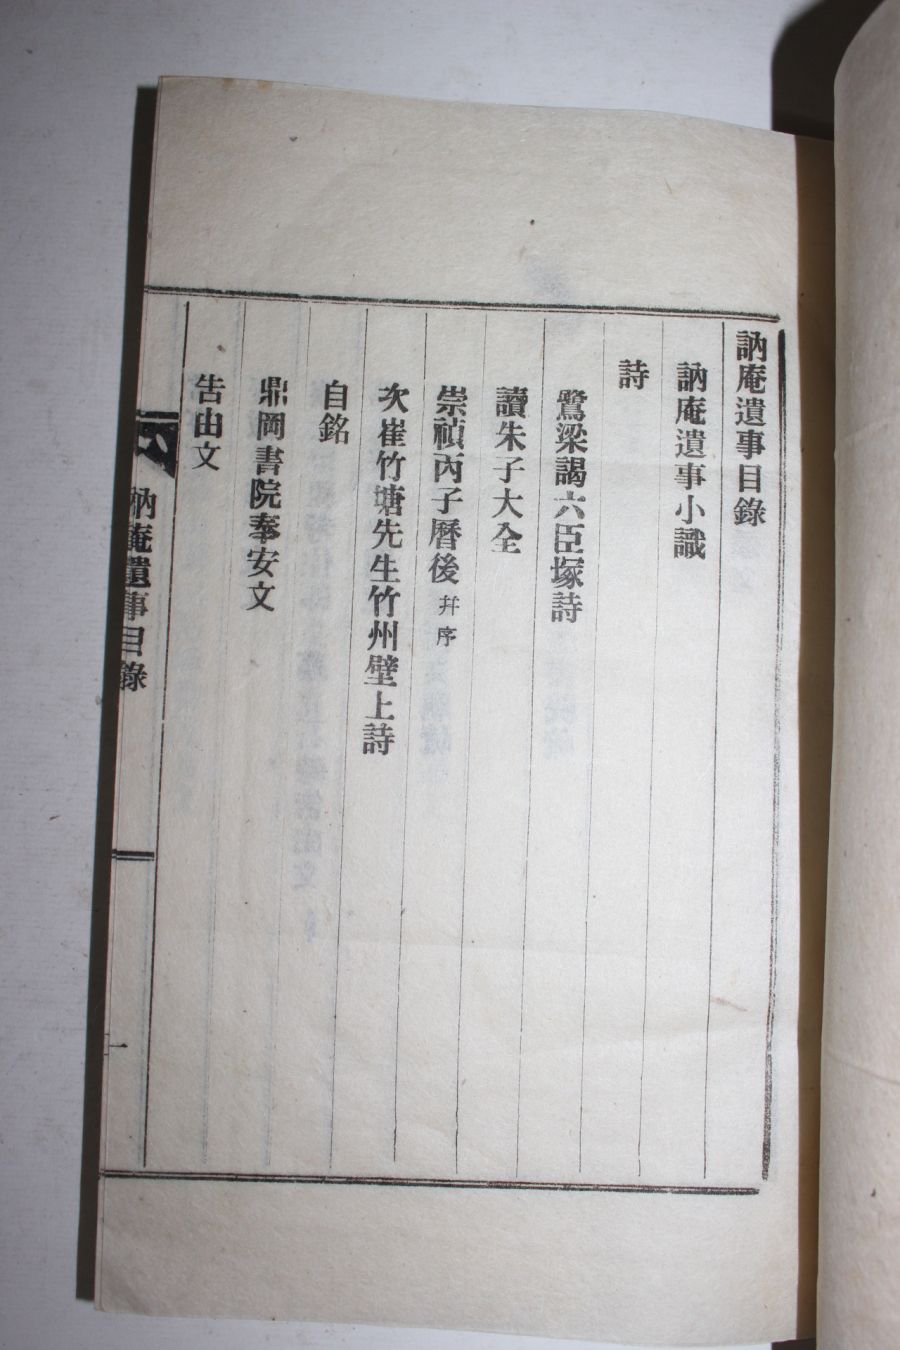 訥庵遺事目錄
訥庵遺事小識
詩
鷺梁謁六臣塚詩
讀朱子大全
崇禎丙子曆後 幷序
次崔竹塘先生竹州壁上詩
自銘
鼎岡書院奉安文
告由文
訥庵遺事目錄
一